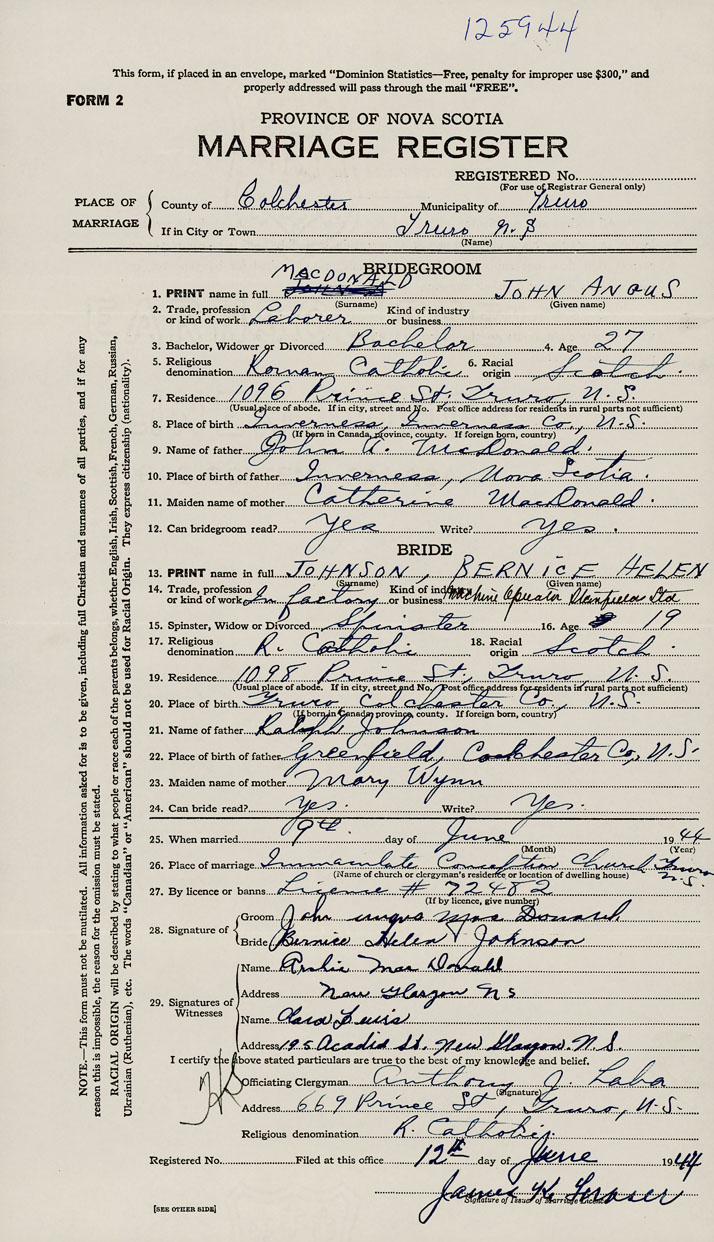 125944
This form, if placed in an envelope, marked "Dominion Statistics—Free, penalty for improper use $300," and
properly addressed will pass through the mail "FREE".
FORM 2
PROVINCE OF NOVA SCOTIA
MARRIAGE REGISTER
REGISTERED No.
(For use of Registrar General only)
PLACE OF MARRIAGE
County of Colchester Municipality of Truro
If in City or Town Truro N.S
(Name)
BRIDEGROOM
1. PRINT name in full MACDONALD JOHN ANGUS
(Surname) (Given name)
2. Trade, profession or kind of work Laborer Kind of industry or business
3. Bachelor, Widower or Divorced Bachelor 4. Age 27
5. Religious denomination Roman Catholic 6. Racial origin Scotch
7. Residence 1096 Prince St. Truro, N.S.
(Usual place of abode. If in city, street and No. Post office address for residents in rural parts not sufficient)
8. Place of birth Inverness, Inverness Co., N.S.
(If born in Canada, province, county. If foreign born, country)
9. Name of father John A. McDonald.
10. Place of birth of father Inverness, Nova Scotia.
11. Maiden name of mother Catherine MacDonald.
12. Can bridegroom read? Yes Write? Yes.
BRIDE
13. PRINT name in full JOHNSON, BERNICE HELEN
(Surname) (Given name)
14. Trade, profession or kind of work In factory Kind of industry or business Machine Operator Stanfields Ltd
15. Spinster, Widow or Divorced Spinster 16. Age 19
17. Religious denomination R. Catholic 18. Racial origin Scotch.
19. Residence 1098 Prince St, Truro, N.S.
(Usual place of abode. If in city, street and No. Post office address for residents in rural parts not sufficient)
20. Place of birth Truro Colchester Co., N.S.
(If born in Canada, province, county. If foreign born, country)
21. Name of father Ralph Johnson
22. Place of birth of father Greenfield, Colchester Co, N.S.
23. Maiden name of mother Mary Wynn
24. Can bride read? Yes. Write? Yes.
25. When married 9th day of June 1944
(Month) (Year)
26. Place of marriage Immaculate Conception Church Truro N.S.
(Name of church or clergyman's residence or location of dwelling house)
27. By licence or banns License # 72482
(If by licence, give number)
28. Signature of
Groom John Angus MacDonald
Bride Bernice Helen Johnson
29. Signatures of Witnesses
Name Archie MacDonald
Address New Glasgow NS
Name Clara Lewis
Address 195 Acadia St. New Glasgow. N.S.
I certify the above stated particulars are true to the best of my knowledge and belief.
Officiating Clergyman Anthony J. Laba
(Signature)
Address 669 Prince St, Truro, N.S.
Religious denomination R. Catholic
Registered No. Filed at this office 12th day of June 1944
James K Fraser
Signature of Issuer of Marriage Licence
[SEE OTHER SIDE]
NOTE.—This form must not be mutilated. All information asked for is to be given, including full Christian and surnames of all parties, and if for any
reason this is impossible, the reason for the omission must be stated.
RACIAL ORIGIN will be described by stating to what people or race each of the parents belongs, whether English, Irish, Scottish, French, German, Russian,
Ukrainian (Ruthenian), etc. The words "Canadian" or "American" should not be used for Racial Origin. They express citizenship (nationality).